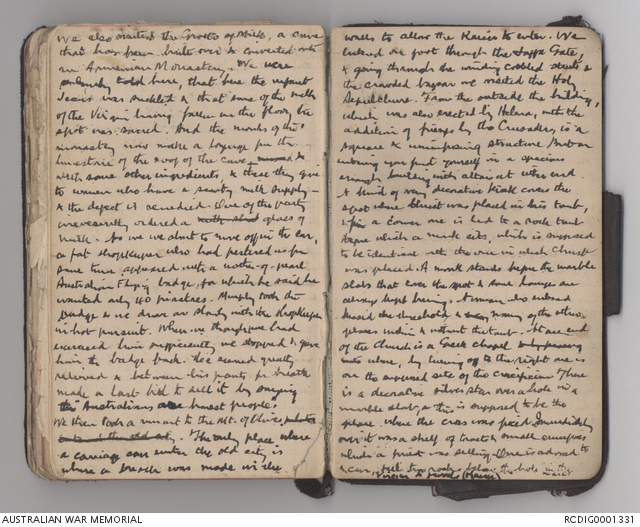 We also visited the Grotto of Milk, a cave
that has been built over & converted into
an Armenian Monastery. We were
solemnly told here, that here the infant
Jesus was suckled & that some of the milk
of the Virgin having fallen on the floor, the
spot was sacred. And the monks of the
monastery now make a lozenge from the
limestone of the roof of the cave
with some other ingredients, & these they give
to women who have a scanty milk supply –
& the defect is remedied. One of the party
irreverently ordered a glass of
milk. As we were about to move off in the car,
a fat shopkeeper who had pestered us for
some time appeared with a mother-of-pearl
Australian Flying badge, for which he said he
wanted only 40 piastres. Murphy took the
badge & we drove on slowly with the shopkeeper
in hot pursuit. When we thought we had
exercised him sufficiently we stopped & gave
him the badge back. He seemed greatly
relieved & between his pants for breath
made a last bid to sell it by saying
the Australians are honest people.
We then took a run out to the Mt. of Olives
The only place where
a carriage can enter the old city, is
where a breach was made in the
walls to allow the Kaiser to enter. We
entered on foot through the Jaffa Gate,
& going through the winding cobbled streets &
the crowded bazaar we visited the Holy
Sepulchure. From the outside the building,
which was also erected by Helena, with the
addition of by the Crusaders, is a
square & unimposing structure. But on
entering you find yourself in a spacious
building with altars at either end.
A kind of very decorative kiosk covers the
spot where Christ was placed in his tomb.
In a corner one is led to a rock tomb
before which a monk sits, which is supposed
to be identical with the one in which Christ
was placed. A monk stands before the marble
slabs that cover the spot & some lamps are
always kept burning. A woman who entered
kissed the threshold & many of the other
places within & without the tomb. At one end
of the Church is a Greek chapel
into where, by turning off to the right one is
on the supposed site of the crucifixion. There
is a decorative silver star over a hole in a
marble slab, & this is supposed to be the
place where the cross was fixed. Immediately
over it was a shelf of & small crucifixes
which a priest was selling. One is asked to
the hole in the
AUSTRALIAN WAR MEMORIAL
RCDIG0001331